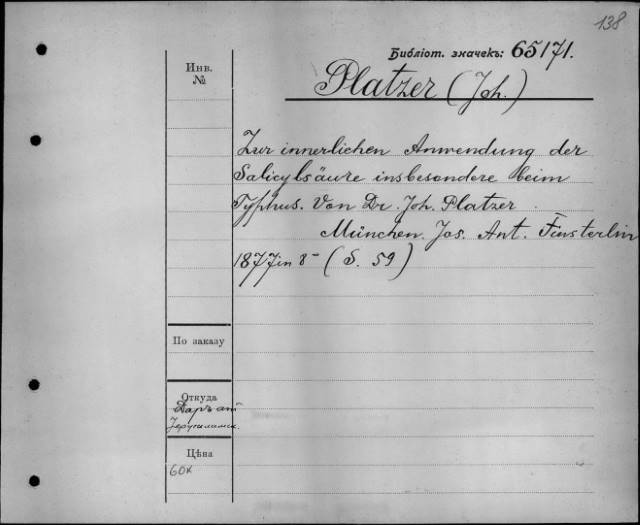 138
Библіот. значекъ: 65171.
Инв.
№
Platzer (Joh.)
Zur innerlichen Anwendung der
Salicylsäure insbesondere beim
Typhus. Von Dr. Joh. Platzer.
München. Jos. Ant. Finsterlin
1877 in 8- (S. 59)
По заказу
Откуда
Даръ
Цѣна
60к